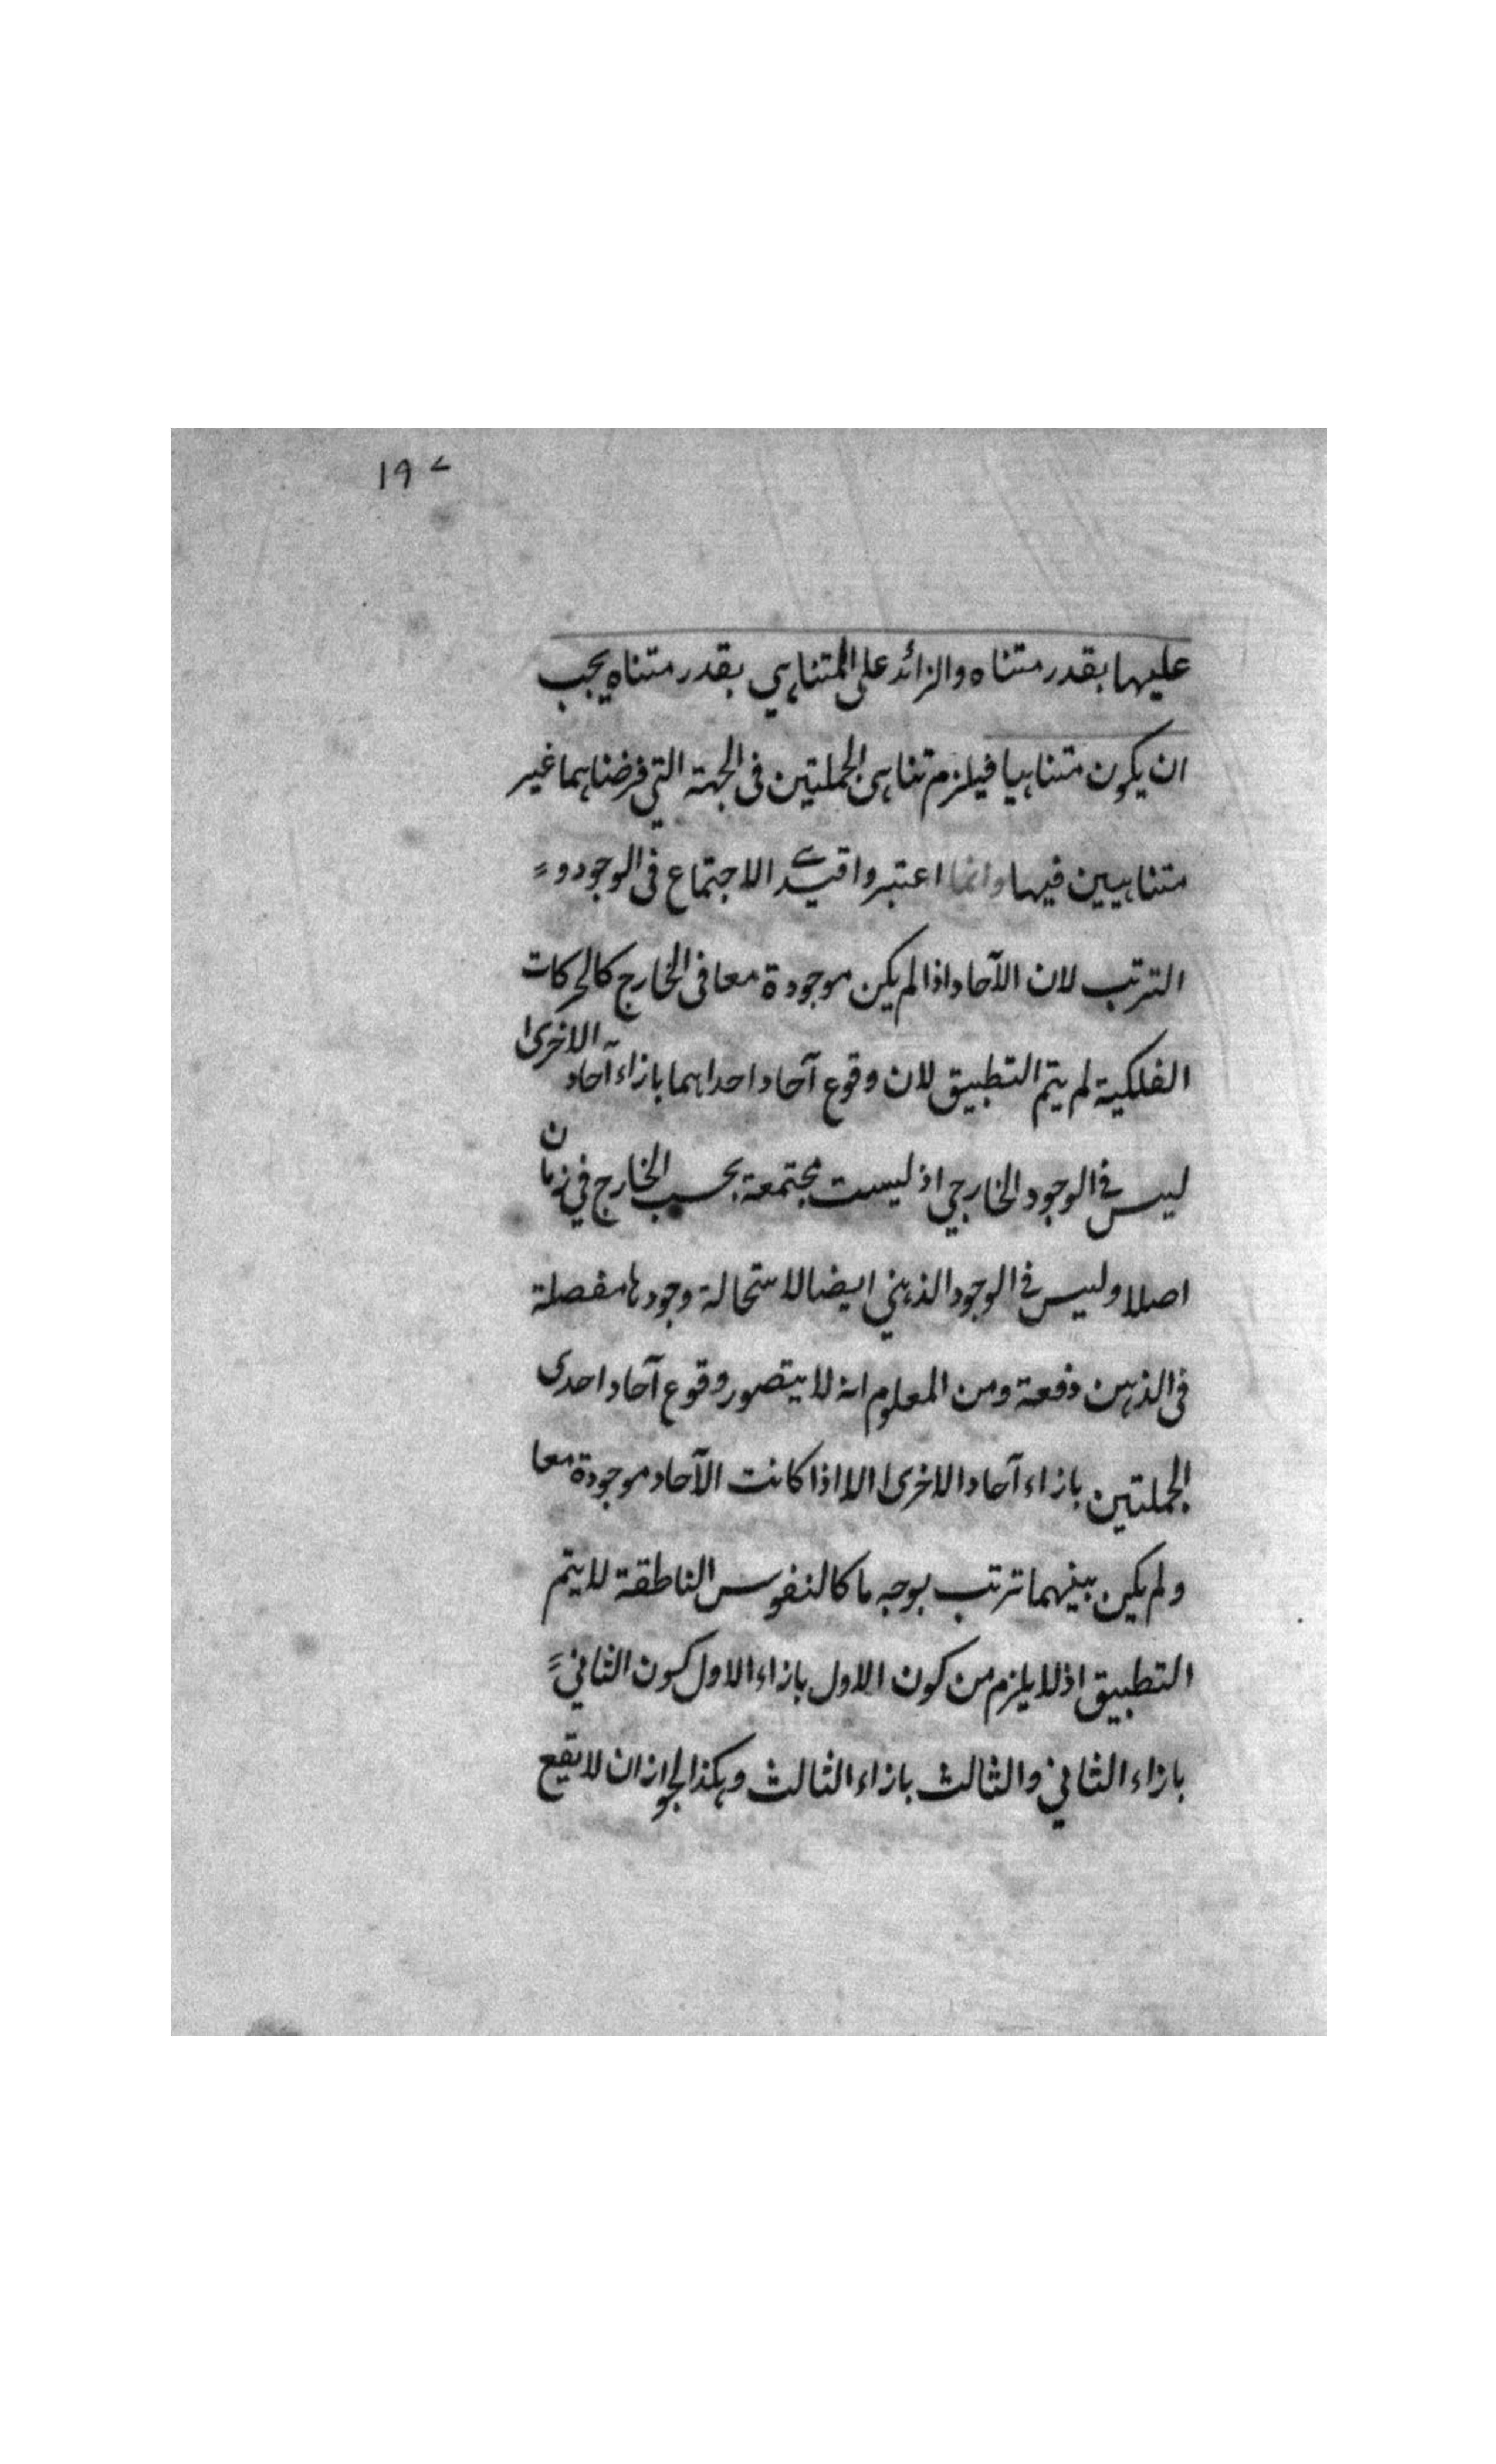 ۱۹۷
عليها بقدر متناه والزائد على المتناهي بقدر متناه يجب
ان يكون متناهيا فيلزم تناهى الجملتين فى الجهة التي فرضناهما غير
متناهيين فيها وانما اعتبروا قيد الاجتماع فى الوجود و
الترتب لان الآحاد اذا لم يكن موجودة معا فى الخارج كالحركات
الفلكية لم يتم التطبيق لان وقوع آحاد احداهما بازاء آحاد الاخرى
ليس في الوجود الخارجي اذ ليست مجتمعة بحسب الخارج في زمان
اصلا وليس في الوجود الذهني ايضا لاستحالة وجودها مفصلة
فى الذهن دفعة ومن المعلوم انه لا يتصور وقوع آحاد احدى
الجملتين بازاء آحاد الاخرى الا اذا كانت الآحاد موجودة معا
ولم يكن بينهما ترتب بوجه ما كالنفوس الناطقة لا يتم
التطبيق اذ لا يلزم من كون الاول بازاء الاول كون الثاني
بازاء الثاني والثالث بازاء الثالث وهكذا لجواز ان لا يقع